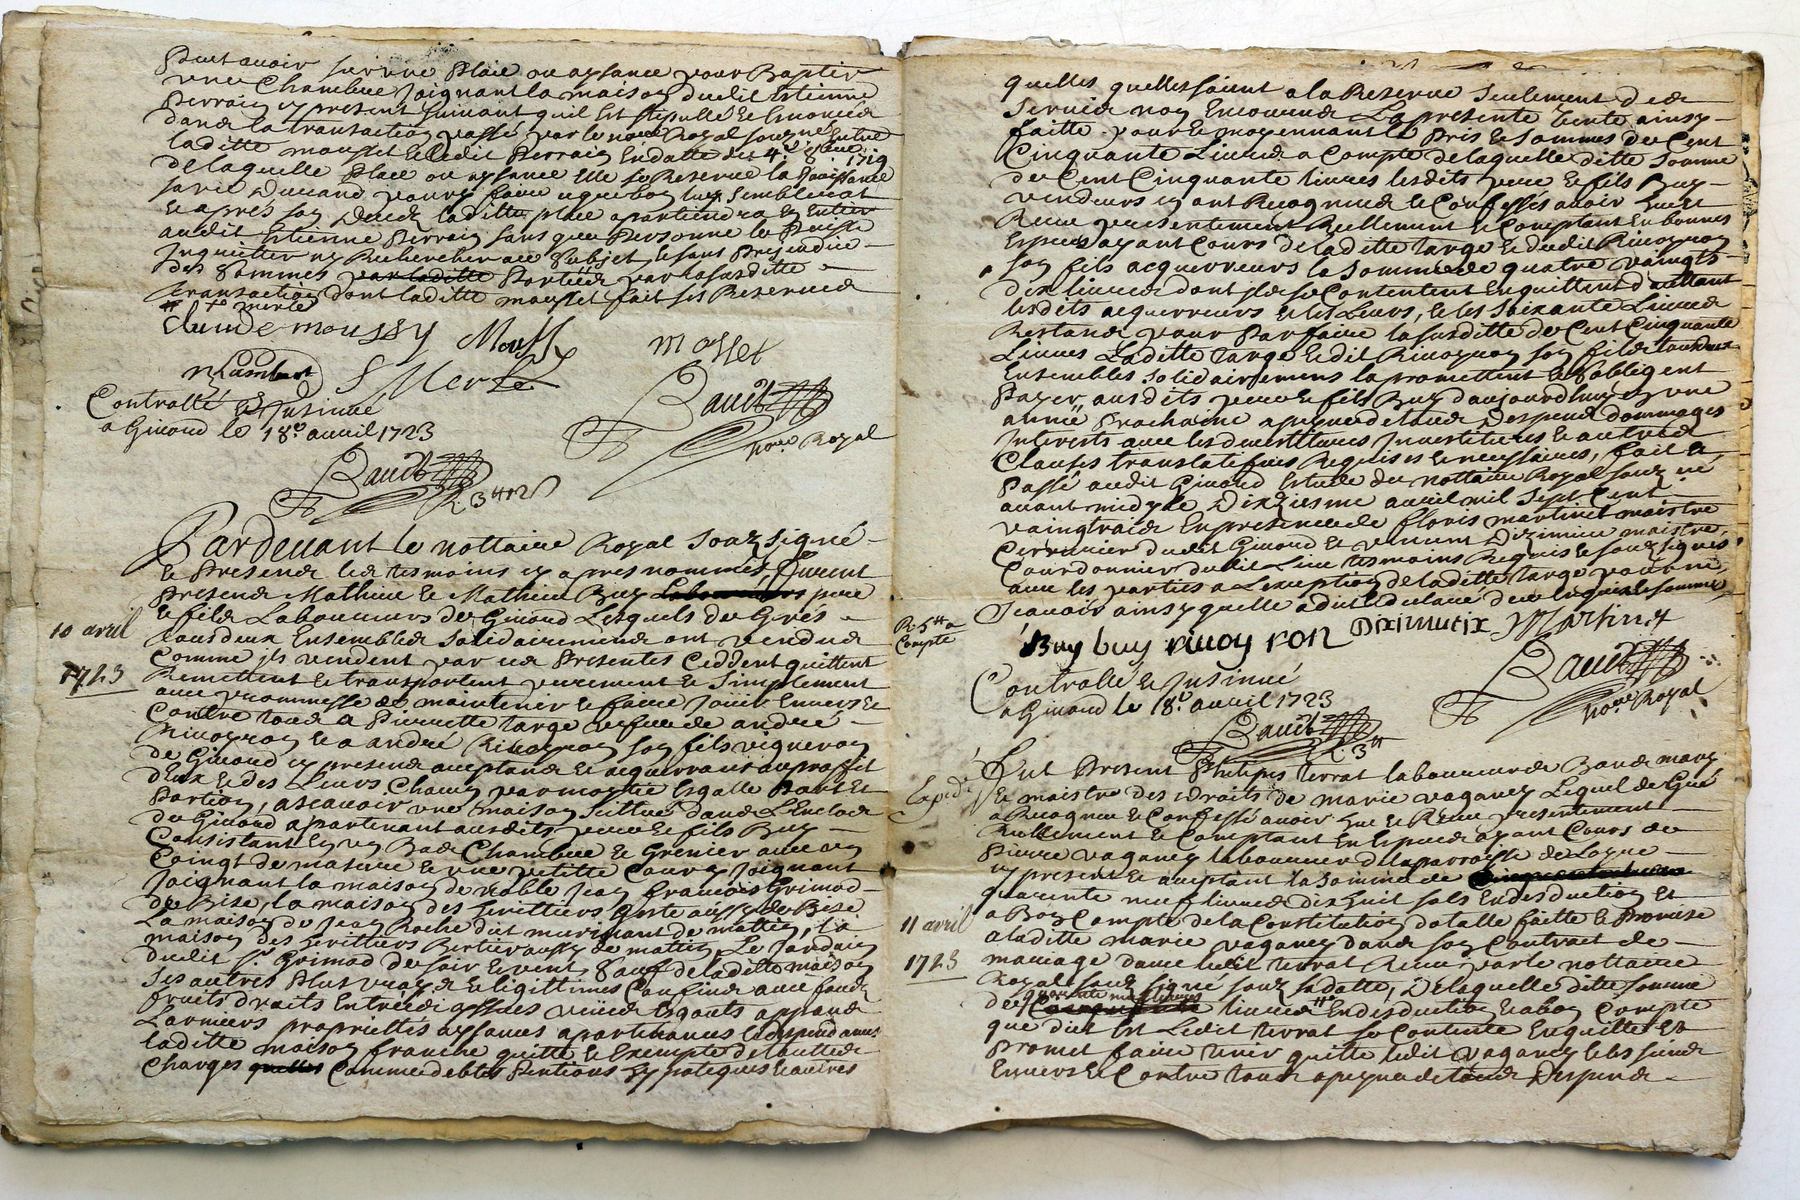 Peut avoir sur une Place ou aysance pour Baptir
une Chambre joignant la maison dudit Estienne
Perrain cy present suivant quil est stipullé et enoncée
dans la transaction passé par le nore Royal souzné Entre
laditte mousset et ledit Perrain En datte des 4e 8bre 1719
de laquelle Place ou aysance Elle se Reserve la Jouissance
sa vie durand pour y faire ce que bon luy semblerat
et aprés son decedz laditte place apartiendra En Entier
audit Estienne Perrain sans que Personne le Puisse
Inquietter ny Rechercher au subjet, et sans Prejudice
des sommes par laditte Portées par la susditte
transaction dont laditte mousset fait ses Reserves
Claude moussy mosset
S Merle
Controllé et Insinué Baudt
a Givord le 18e avril 1723 nore Royal
Baudt
Pardevant le nottaire Royal souz signé
et Presence des tesmoins cy apres nommés, furent
presents Mathieu et Mathieu Buy Laboureurs pere
et fils Laboureurs de Givord Lesquels de Grés
10 avril
1723
tous deux Ensembles Solidairement ont vendus
comme ils vendent par ces Presentes Ceddent quittent
Remettent et transportent purement et simplement
avec promesse de maintenir et faire jouir Envers et
Contre tous a Pierrette targe vefve de andré
Rivoyron et a andré Rivoyron son fils vigneron
de Givord cy presents acceptants et acquerrants au proffit
d'Eux et des Leurs Chacun par moytié Esgalle Part et
Portion, ascavoir une maison scittuée dans L'Enclos
de Givord apartenant ausdits pere et fils Buy
Consistant En un Bas Chambre et Grenier avec un
Coingt de masure et une petitte Cour, Joignant
Joignant la maison de noble Jean francois Grimod
de Bise, la maison des herittiers aussy de Bise
La maison de Jean Roche dit de mattin, la
maison des herittiers aussy de mattin, Le Jardin
dudit Sr Grimod de soir et vent, sauf de laditte maison
ses autres Plus vrays et legittimes Confins avec fonds
fruits droits Entrées yssues
proprietés aysances apartenances et despendances
laditte maison franche quitte et Exempte de touttes
Charges quelles Comme debtes Pentions Ypoteques et autres
quelles quelles soient a la Reserve seulement des
servis non Encourus La presente vente ainsy
faitte pour et moyennant le Pris et sommes de Cent
Cinquante Livres a Compte de laquelle ditte somme
de Cent Cinquante livres lesdits pere et fils Buy
vendeurs cy ont Recognus et Confessés avoir heu et
Receu presentement Reellement et Comptant En bonnes
Especes ayant Cours de laditte targe et dudit Rivoyron
son fils acquerreurs la somme de quatre vaingts
dix livres dont ils se Contentent En quittent d'aultant
lesdits acquerreurs et les Leurs, Et les soixante Livres
Restants pour Parfaire la susditte de Cent Cinquante
Livres Laditte targe et dit Rivoyron son fils tous deux
Ensembles Solidairement la promettent et s'obligent
Payer ausdits pere et fils Buy d'aujourdhuy En une
année Prochaine a peyne de tous Despens dommages
Interests avec les devestitures Investitures et autres
Clauses translatifves Requises et necessaires, fait et
Passé audit Givord Estude du nottaire Royal souz né
avant midy le Dixiesme avril mil sept Cent
vaingtrois En presence de floris martinet maistre
Cerrurier dudit Givord et vincent Diximieux maistre
Courdonnier dudit Lieu tesmoins Requis et souz signés
avec les parties a L'exception de laditte targe pour ne
sçavoir ainsy quelle a dit et declaré de ce Enquise et sommée
Compte
Buy buy rivoyron Diximieux Martinet
Controllé et Insinué Baudt
a Givord le 18e avril 1723 nore Royal
Baudt
fut Present Philipes terrat laboureur de
Expedié
et maistre des droits de marie vaganey Lequel de Gré
a Recognu et Confessé avoir heu et Receu presentement
Reellement et Comptant En Especes ayant Cours de
Pierre vaganey laboureur de la parroisse de Logne
cy present et acceptant la somme de
quarente neuf livres dix huit sols En desduction et
11 avril
a Bon Compte de la Constitution dotalle faitte et Promise
1723
a laditte marie vaganey dans son Contract de
mariage d'avec ledit terrat Receu par le nottaire
Royal souz signé souz sa datte, De laquelle ditte somme
de quarente neuf livres livres En desduction et a bon Compte
que dict Est Ledit terrat se Contente En quitte et
Promet faire tenir quitte ledit vaganey et les siens
Envers et Contre tous a peyne de tous Despens